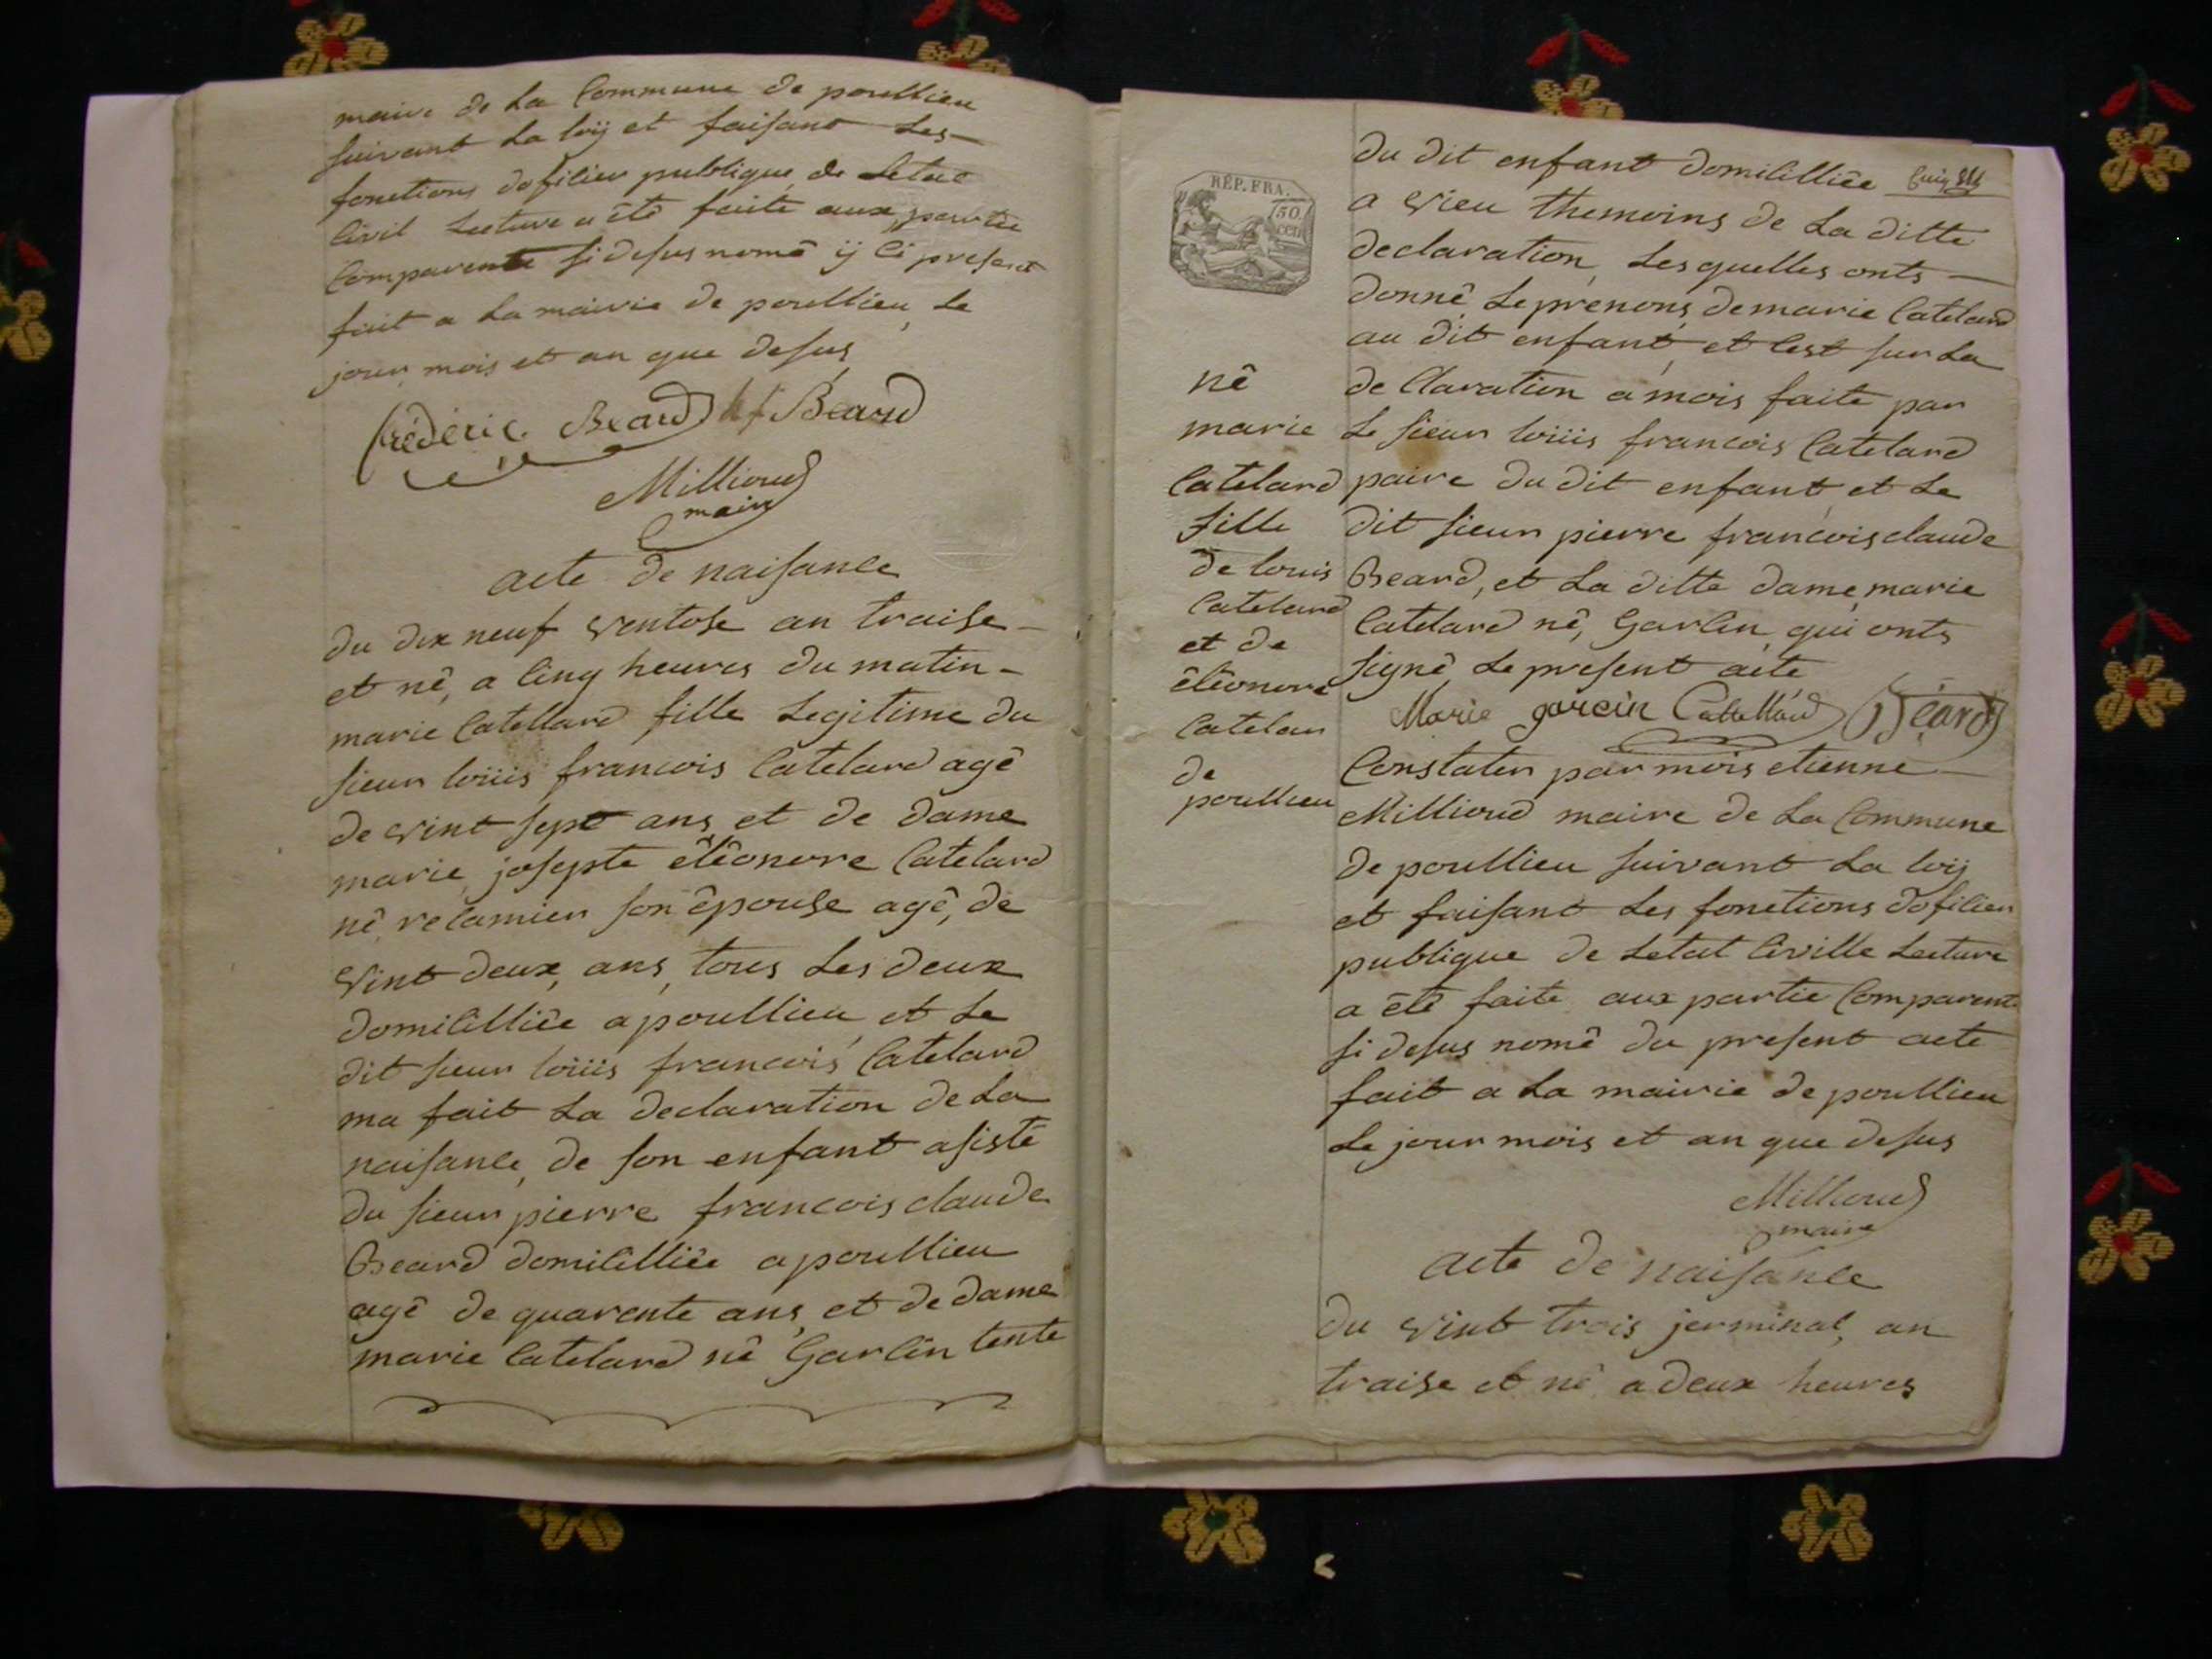 maire de La Commune de poullieu
suivant La loÿ et faisant Les
fonctions dofilier publique de Letat
Civil Lecture a êtê faite aux partie
Comparente si desus nomê ÿ Ci present
fait a La mairie de poullieu Le
jour mois et an que desus
frédéric Beard Beard
Millioud
maire
acte de naisance
du dix neuf ventose an traise
et nê, a Cinq heures du matin
marie Catellard fille Legitime du
sieur loüis francois Catelard agê
de vint sept ans et de dame
marie josepte élêonore Catelard
nê, recamier son êpouse agê, de
vint deux, ans, tous Les deux
domicilliêe a poullieu et Le
dit sieur loüis francois Catelard
ma fait La declaration de La
naisance, de son enfant asistê
du sieur pierre francois claude
Beard domicilliêe a poullieu
agê de quarente ans, et de dame
marie Catelard nê Garcin tente
du dit enfant domicilliêe
a vieu themoins de La ditte
declaration Lesquelles onts
donnê Le prenons de marie Catelard
au dit enfant et Cest sur La
de Claration a mois faite par
Le sieur loüis francois Catelard
paire du dit enfant et Le
dit sieur pierre francois claude
Beard, et La ditte dame marie
Catelard nê, Garcin qui onts
signê Le present acte
Marie garcin Catellard Béard
Constater par mois etienne
Millioud maire de La Commune
de poullieu suivant La loÿ
et faisant Les fonctions dofilier
publique de Letat Civille Lecture
a êtê faite aux partie Comparente
si desus nomê du present acte
fait a La mairie de poullieu
Le jour mois et an que desus
Millioud
maire
acte de naisance
du vint trois jerminal, an
traise et nê a deux heures
RÉP. FRA.
50
cen
nê
marie
Catelard
fille
de louis
Catelard
et de
élêonore
Catelar
de
poullieu